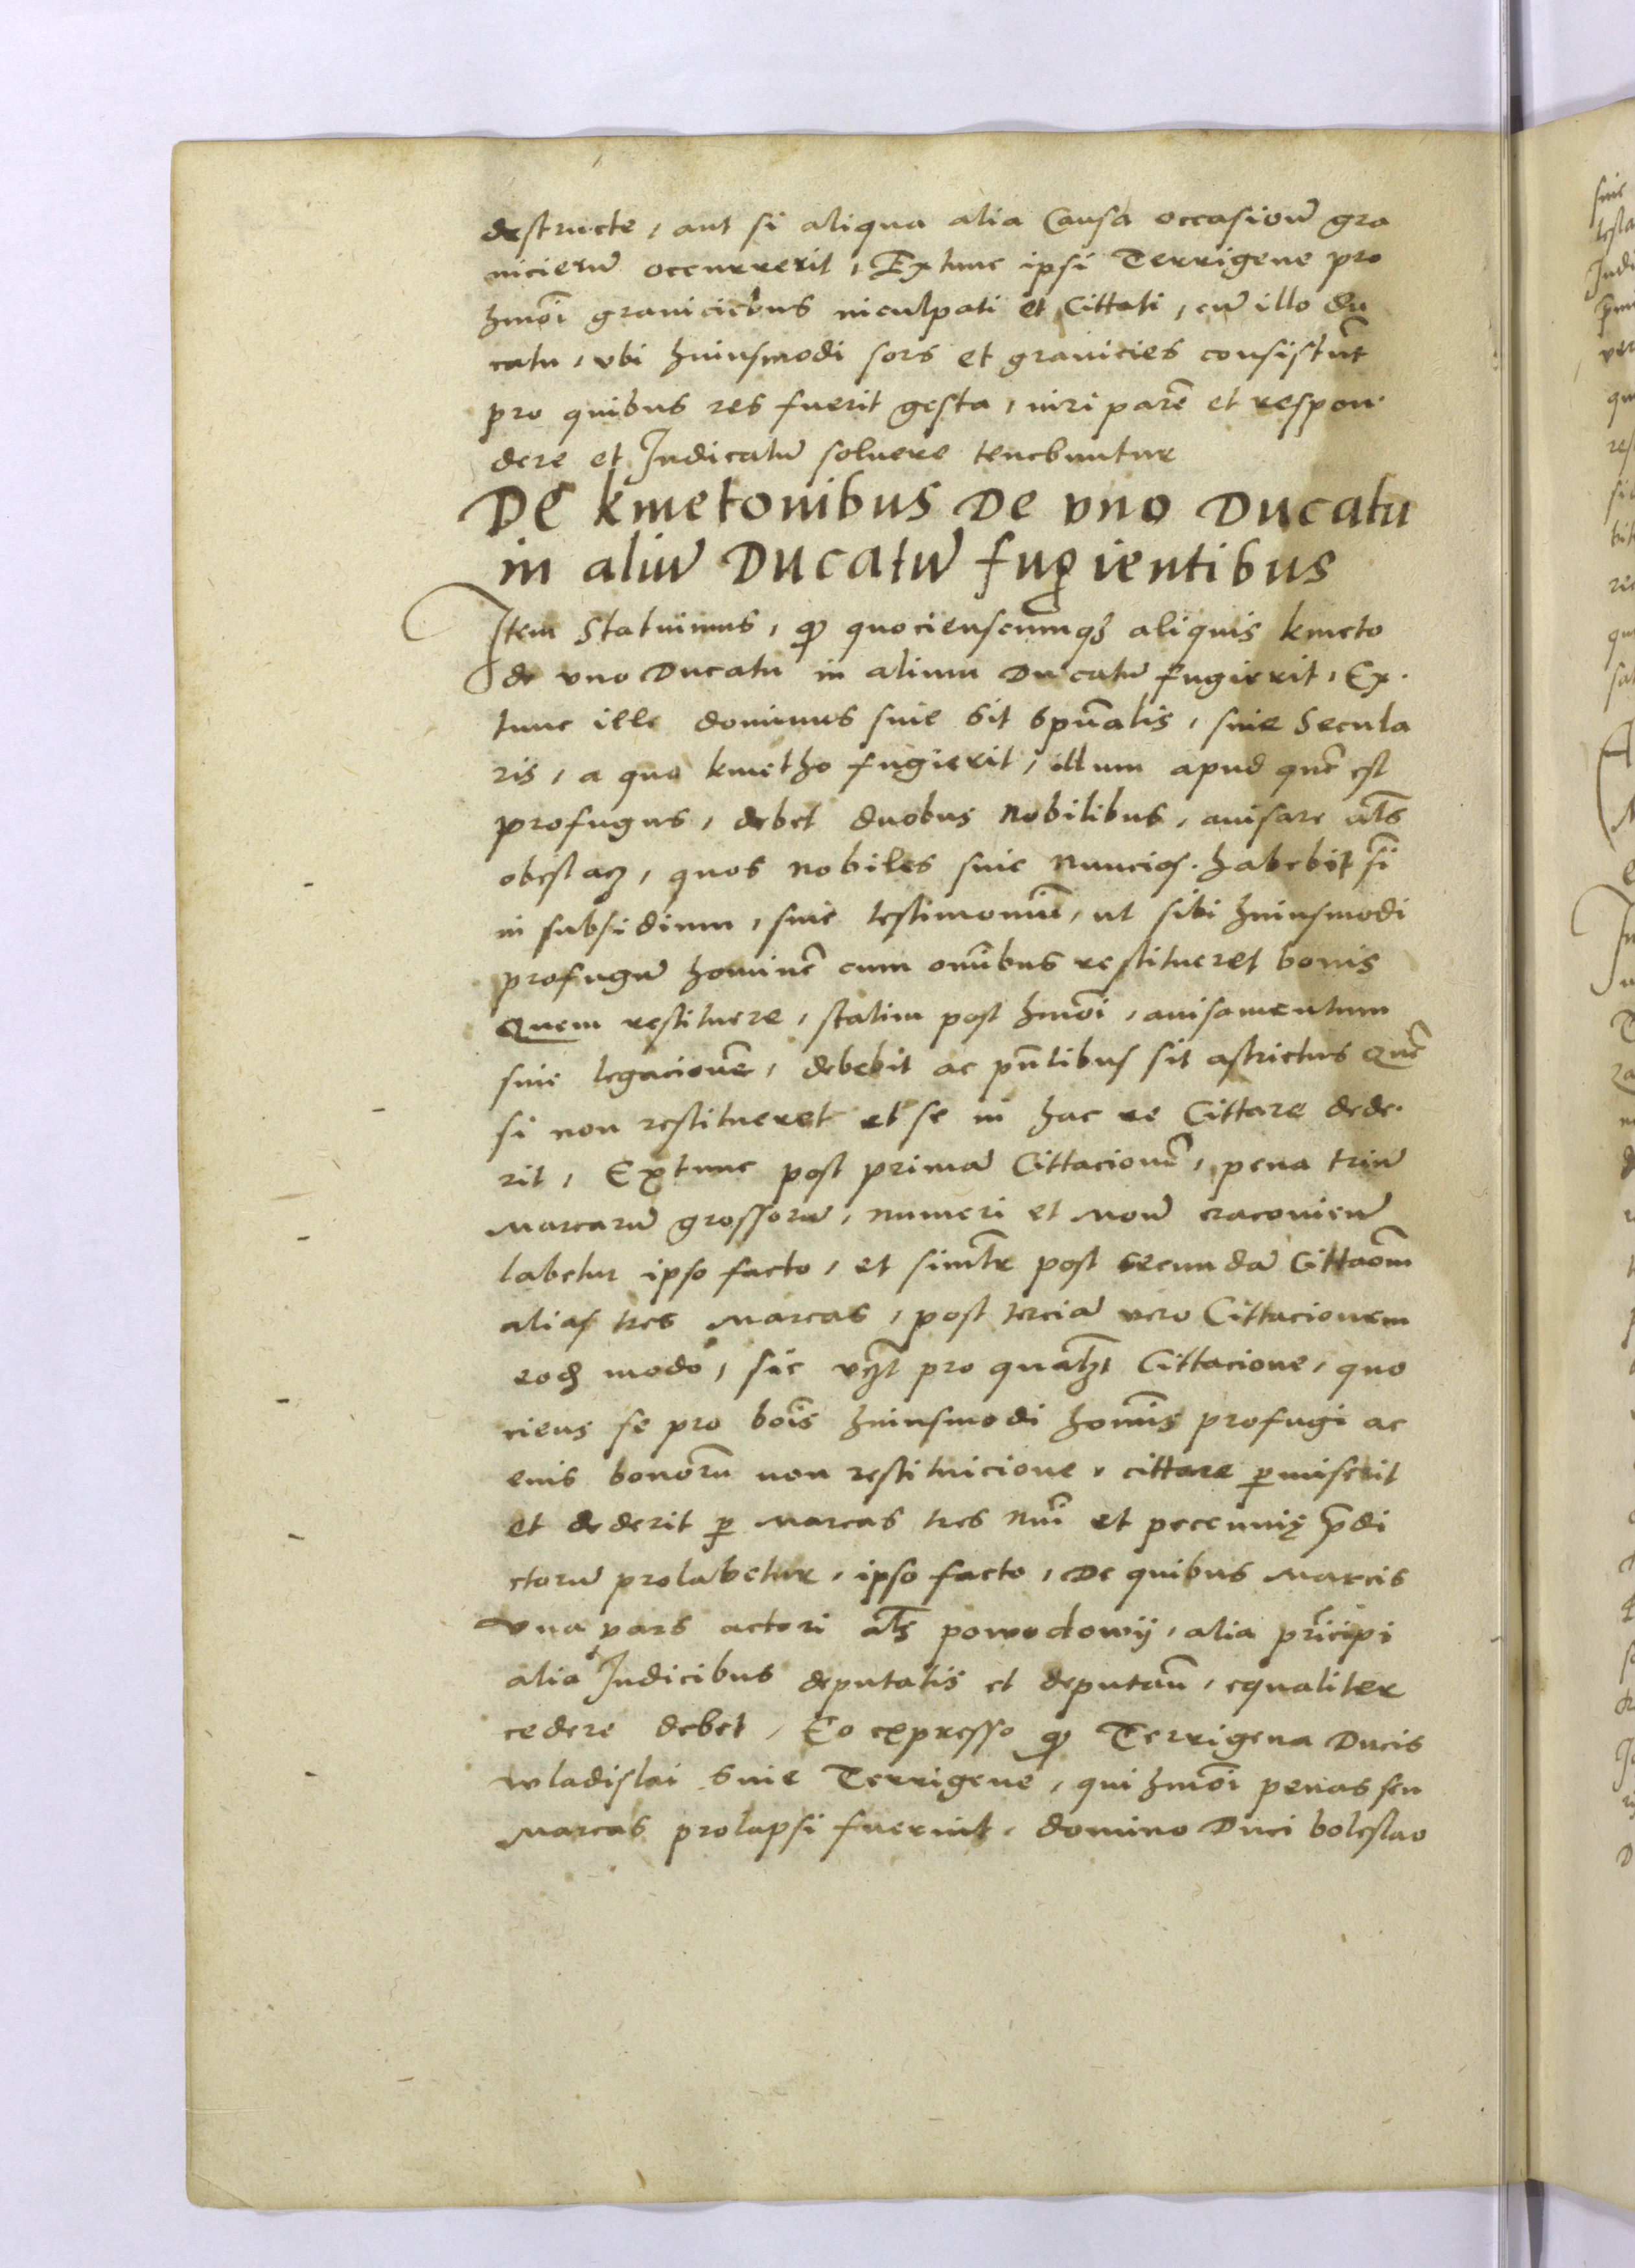 destructe, aut si aliqua alia Causa occasioū gra
nicierū occurrerit, Extunc ipsi Terrigene pro
hmōi graniciebus inculpati et Cittati, cū illo du
catu, vbi huiusmodi sors et granicies consistūt
pro quibus res fuerit gesta, iuri parē et respon-
dere et Iudicatū soluere tenebuntur
De kmetonibus De vno Ducatu
in aliū Ducatū fugientibus
Item Statuimus, ꝙ quocienscumqꝫ aliquis kmeto
de vno Ducatu in alium Ducatū fugierit, Ex-
tunc ille dominus siue sit spūalis, siue Secula
ris, a quo kmetho fugierit, illum apud quē est
profugus, debet duobus Nobilibus, auisare als̄
obeslacz, quos nobiles siue Nuncios habebit sī
in subsidium, siue testimoniū, ut sibi huiusmodi
profugū hominē cum om̄ibus restitueret bonis
Quem restituere, statim post hmōi, auisamentum
siue legacionē, debebit ac pn̄tibus sit astrictus Quē
si non restitueret et se in hac re Cittare dede-
rit, Extunc post primā Cittacionē, pena triū
Marcarū grossorū, numeri et Monē cracouien̄
labetur ipso facto, et simlr̄ post secundā Cittaōm
alias tres Marcas, post terciā vero Cittacionem
eodꝫ modo, sic vꝫt pro qualꝫt Cittacione, quo
ciens se pro bōis huiusmodi homīs profugi ac
euis bonorū non restituicione, cittare ꝑmiserit
et dederit ꝑ Marcas tres Nūi et peccunię p̄di
ctorū prolabetur, ipso facto, De quibus Marcis
Vna pars actori als̄ powodowij, alia prīcipi
alia Iudicibus deputatis et deputan̄, equaliter
cedere debet, Eo expresso ꝙ Terrigena Ducis
wladislai siue Terrigene, qui hmōi penas seu
Marcas prolapsi fuerint, domino Duci boleslao